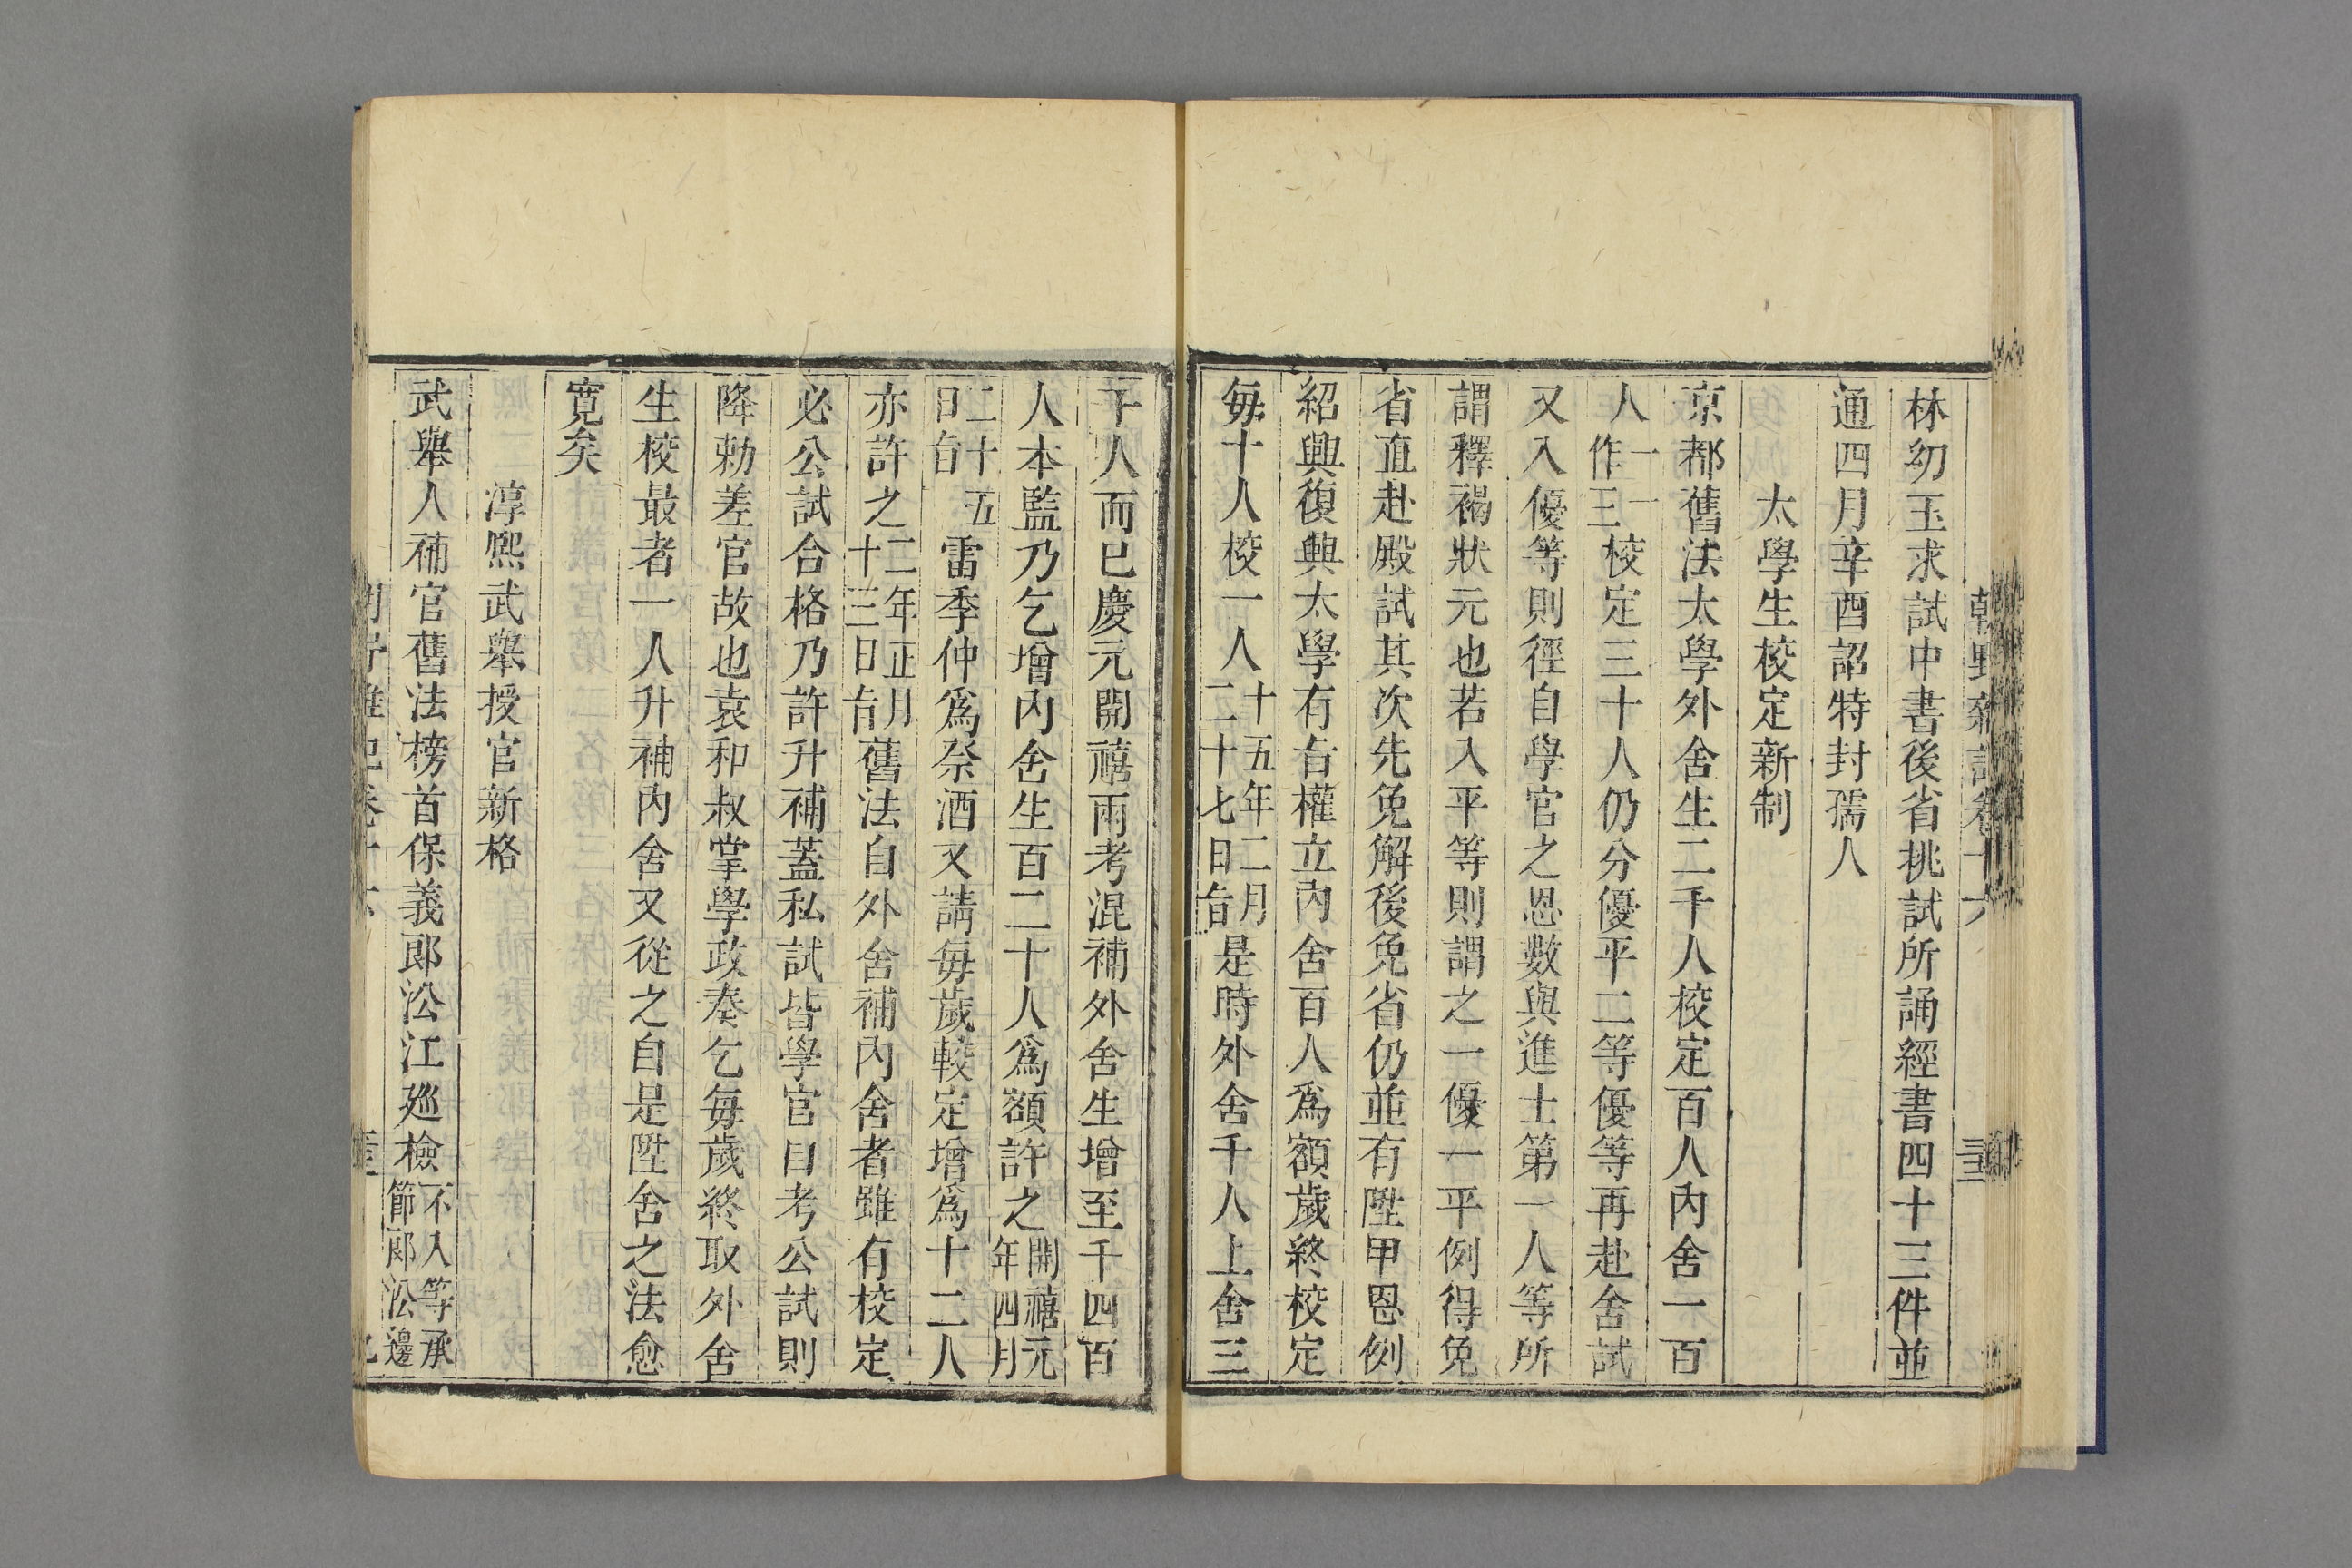 林幼玉求試中書後省挑試所誦經書四十三件並
通四月辛酉詔特封孺人
太學生校定新制
京都舊法太學外舍生二千人校定百人內舍一百
人一作一三校定三十人仍分優平二等優等再赴舍試
又入優等則徑自學官之恩數與進士第一人等所
謂釋褐狀元也若入平等則謂之一優一平例得免
省直赴殿試其次先免解後免省仍並有陞甲恩例
紹興復興太學有旨權立內舍百人爲額歲終校定
每十人校一人十五年二月二十七日旨是時外舍千人上舍三
十人而已慶元開禧兩考混補外舍生增至千四百
人本監乃乞增內舍生百二十人爲額許之開禧元年四月
二十五日旨雷季仲爲祭酒又請每歲較定增爲十二人
亦許之二年正月十三日旨舊法自外舍補內舍者雖有校定
必公試合格乃許升補蓋私試皆學官自考公試則
降勅差官故也袁和叔掌學政奏乞每歲終取外舍
生校最者一人升補內舍又從之自是陞舍之法愈
寬矣
淳熙武舉授官新格
武舉人補官舊法榜首保義郎沿江廵檢不入等承節郎沿邊